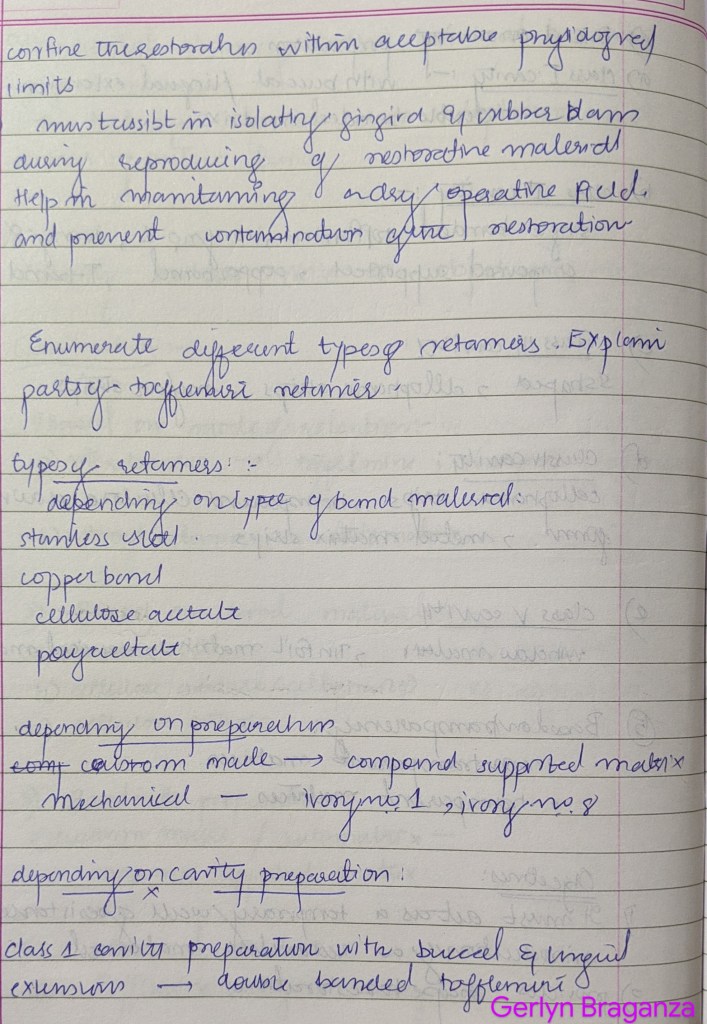 confine the restoration within acceptable physiological
limits
must assist in isolating gingiva & rubber dam
during reproducing of restorative material
Help in maintaining a dry operative field.
and prevent contamination of the restoration
Enumerate different types of retainers. Explain
parts of tofflemire retainer
types of retainers :-
depending on type of band material:
stainless steel.
copper band
cellulose acetate
polyacetate
depending on preparation
custom made → compound supported matrix
Mechanical — ivory no. 1, ivory no. 8
depending on cavity preparation :
class 1 cavity preparation with buccal & lingual
extensions → double banded tofflemire
Gerlyn Braganza